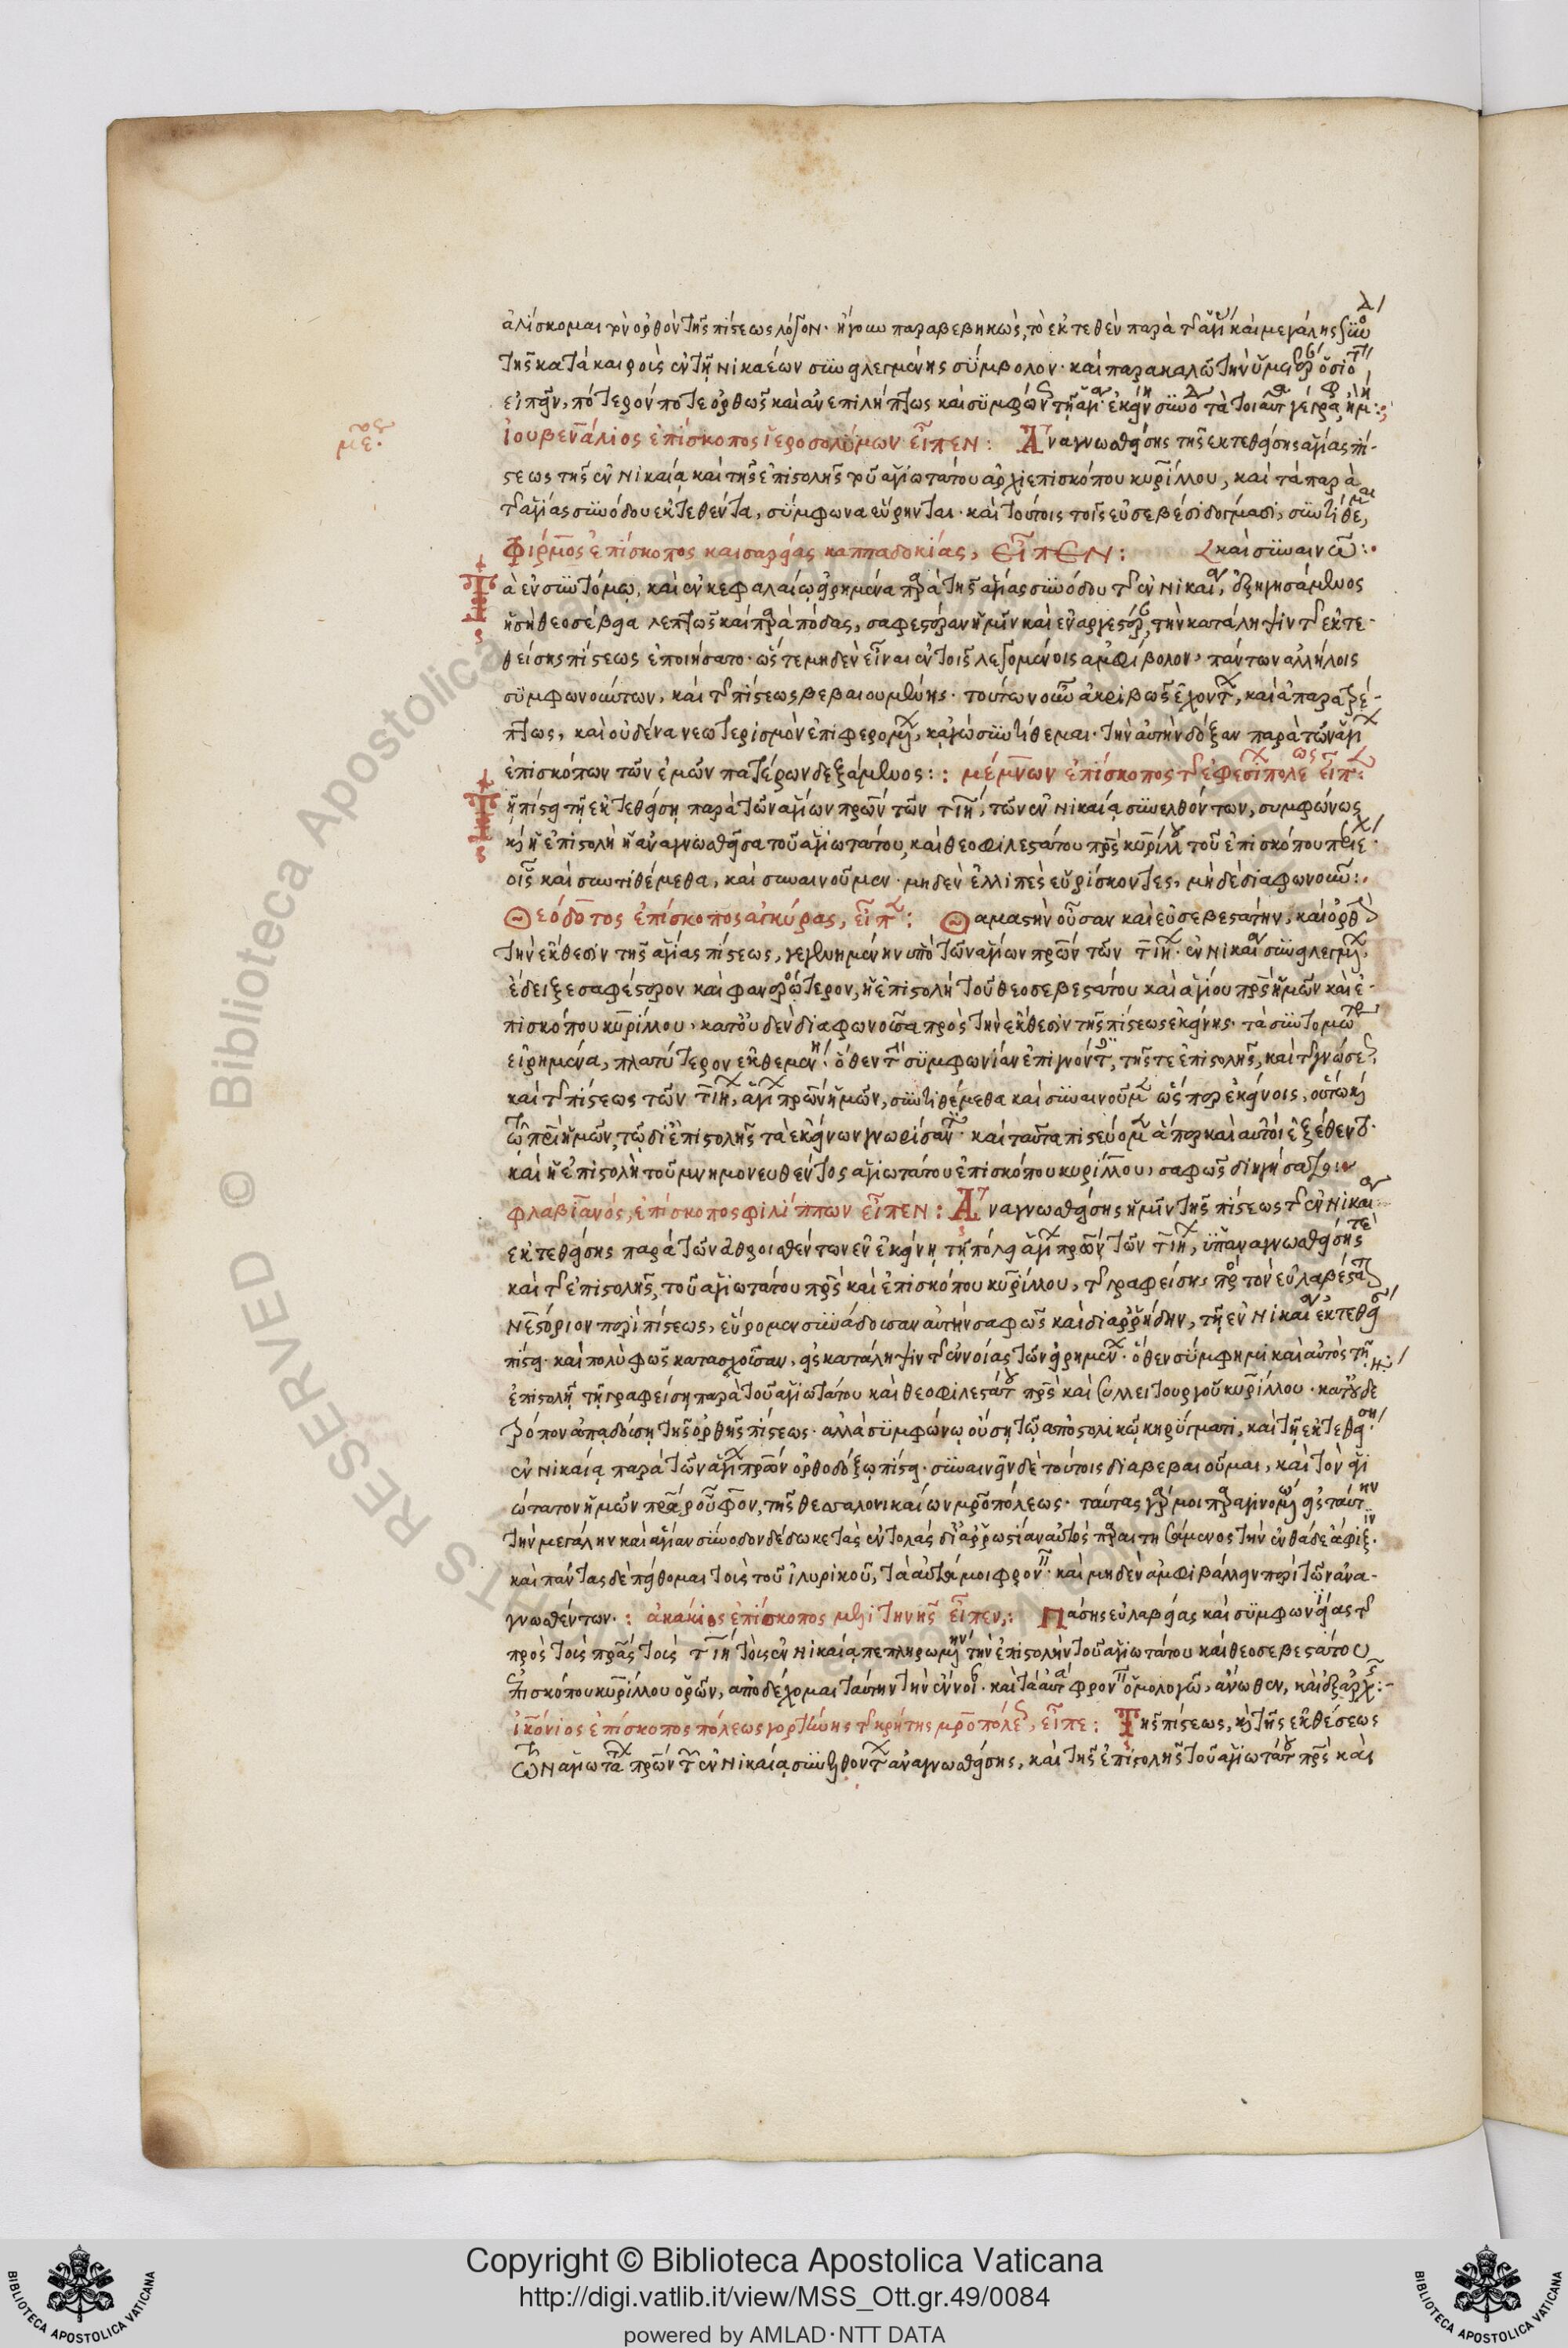 ἁλίσκομαι τὸν ὀρθὸν τῆς πίστεως λόγον· ἤγουν παραβεβηκώς, τὸ ἐκτεθὲν παρὰ τῆς ἁγί καὶ μεγάλης συνό
τῆς κατὰ καιροὺς ἐν τῇ Νικαέων συνειλεγμένης σύμβολον· καὶ παρακαλῶ τὴν ὑμετέρ ὁσιότ
εἰπεῖν, πότερόν ποτε ὀρθῶς καὶ ἀνεπιλήπτως καὶ συμφών τῇ ἁγί ἐκείνη συνόδ τὰ τοιαῦτ γέγραφ
Ἰουβενάλιος ἐπίσκοπος ἱεροσολύμων εἶπεν: Ἀναγνωσθείσης τῆς ἐκτεθείσης ἁγίας πί-
στεως τῆς ἐν Νικαίᾳ καὶ τῆς ἐπιστολῆς τοῦ ἁγιωτάτου ἀρχιεπισκόπου κυρίλλου, καὶ τὰ παρὰ
τῆς ἁγίας συνόδου ἐκτεθέντα, σύμφωνα εὕρηνται· καὶ τούτοις τοῖς εὐσεβέσι δόγμασι, συντίθεμαι,
Φίρμος ἐπίσκοπος καισαρείας καππαδοκίας, εἶπεν: καὶ συναινῶ:
Τὰ ἐν συντόμῳ, καὶ ἐν κεφαλαίῳ εἰρημένα παρὰ τῆς ἁγίας συνόδου τῆς ἐν Νικαί, ἐξηγησάμενος
ἡ σὴ θεοσέβεια λεπτῶς καὶ παρὰ πόδας, σαφεστέραν ἡμῖν καὶ ἐναργεστέρ, τὴν κατάληψιν τῆς ἐκτε-
θείσης πίστεως ἐποιήσατο· ὥστε μηδὲν εἶναι ἐν τοῖς λεγομένοις ἀμφίβολον, πάντων ἀλλήλοις
συμφωνούντων, καὶ τῆς πίστεως βεβαιουμένης· τούτων οὖν ἀκριβῶς ἐχόντ, καὶ ἀπαρατρέ-
πτως, καὶ οὐδένα νεωτερισμὸν ἐπιφερομέν, κἀγὼ συντίθεμαι· τὴν αὐτὴν δόξαν παρὰ τῶν ἁγί
ἐπισκόπων τῶν ἐμῶν πατέρων δεξάμενος: : μέμνων ἐπίσκοπος τῆς ἐφεσί πόλεως εἶπ:
Τῇ πίστει τῇ ἐκτεθείσῃ παρὰ τῶν ἁγίων πρων τῶν τιη, τῶν ἐν Νικαίᾳ συνελθόντων, συμφώνως
καὶ ἡ ἐπιστολὴ ἡ ἀναγνωσθεῖσα τοῦ ἁγιωτάτου, καὶ θεοφιλεστάτου πρς κυρίλλου τοῦ ἐπισκόπου περιέχ·
οἷς καὶ συντιθέμεθα, καὶ συναινοῦμεν· μηδὲν ἐλλιπὲς εὑρίσκοντες, μηδὲ διαφωνοῦν:
Θεόδοτος ἐπίσκοπος ἀγκύρας, εἶπ: Θαμαστὴν οὖσαν καὶ εὐσεβεστάτην, καὶ ὀρθ
τὴν ἔκθεσιν τῆς ἁγίας πίστεως, γεγενημένην ὑπὸ τῶν ἁγίων πρων τῶν τιη· ἐν Νικαί συνειλεγμέν,
ἔδειξε σαφέστερον καὶ φανερώτερον, ἡ ἐπιστολὴ τοῦ θεοσεβεστάτου καὶ ἁγίου πρς ἡμῶν καὶ ἐ-
πισκόπου κυρίλλου, κατ' οὐδὲν διαφωνοῦσα πρὸς τὴν ἔκθεσιν τῆς πίστεως ἐκείνης· τὰ συντομώτερ
εἰρημένα, πλατύτερον ἐκθεμένη· ὅθεν τὴν συμφωνίαν ἐπιγνόντ, τῆς τε ἐπιστολῆς, καὶ τῆς γνώσε,
καὶ τῆς πίστεως τῶν τιη, ἁγί πρων ἡμῶν, συντιθέμεθα καὶ συναινοῦμ ὥσπερ ἐκείνοις, οὕτω καὶ
τῷ πρι ἡμῶν, τῷ δι' ἐπιστολῆς τὰ ἐκείνων γνωρίσαντ· καὶ ταῦτα πιστεύομ ἅπερ καὶ αὐτοὶ ἐξέθεντο·
καὶ ἡ ἐπιστολὴ τοῦ μνημονευθέντος ἁγιωτάτου ἐπισκόπου κυρίλλου, σαφῶς διηγήσατο:
φλαβιανός, ἐπίσκοπος φιλίππων εἶπεν: Ἀναγνωσθείσης ἡμῖν τῆς πίστεως τῆς ἐν Νικαί
ἐκτεθείσης παρὰ τῶν ἀθροισθέντων ἐν ἐκείνῃ τῇ πόλει ἁγί πρων τῶν τιη, ὑπαναγνωσθείσης τε
καὶ τῆς ἐπιστολῆς, τοῦ ἁγιωτάτου πρς καὶ ἐπισκόπου κυρίλλου, τῆς γραφείσης πρὸς τὸν εὐλαβέστατ
Νεστόριον περὶ πίστεως, εὕρομεν συνάδουσαν αὐτὴν σαφῶς καὶ διαρρήδην, τῇ ἐν Νικαί ἐκτεθείσ
πίστει· καὶ πολὺ φῶς κατασχοῦσαν, εἰς κατάληψιν τῆς ἐννοίας τῶν εἰρημέν· ὅθεν σύμφημι καὶ αὐτὸς τῇ
ἐπιστολῇ τῇ γραφείσῃ παρὰ τοῦ ἁγιωτάτου καὶ θεοφιλεστάτου πρς καὶ συλλειτουργοῦ κυρίλλου· κατ' οὐδέ
τρόπον ἀπᾳδούσῃ τῆς ὀρθῆς πίστεως· ἀλλὰ συμφώνῳ οὔσῃ τῷ ἀποστολικῷ κηρύγματι, καὶ τῇ ἐκτεθείσῃ
ἐν Νικαίᾳ παρὰ τῶν ἁγί πρων ὀρθοδόξῳ πίστει· συναινεῖν δὲ τούτοις διαβεβαιοῦμαι, καὶ τὸν ἁγι
ώτατον ἡμῶν πρα ῥοῦφον, τῆς θεσσαλονικαίων μροπόλεως· ταύτας γάρ μοι παραγινομέν εἰς ταύτην
τὴν μεγάλην καὶ ἁγίαν σύνοδον δέδωκε τὰς ἐντολάς δι' ἀρρωστίαν αὐτὸς παραιτησάμενος τὴν ἐνθάδε ἄφιξιν·
καὶ πάντας δὲ πείθομαι τοὺς τοῦ ἰλυρικοῦ, τὰ αὐτά μοι φρον· καὶ μηδὲν ἀμφιβάλλειν περὶ τῶν ἀνα-
γνωσθέντων· : ἀκάκιος ἐπίσκοπος μελιτηνῆς εἶπεν,: Πάσης εὐλαβείας καὶ συμφωνείας τῆς
πρὸς τοὺς πρας τοὺς τιη τοὺς ἐν Νικαίᾳ πεπληρωμένην τὴν ἐπιστολὴν τοῦ ἁγιωτάτου καὶ θεοσεβεστάτου
ἐπισκόπου κυρίλλου ὁρῶν, ἀποδέχομαι ταύτην τὴν ἔννοι· καὶ τὰ αὐτὰ φρον ὁμολογῶ, ἄνωθεν, καὶ ἐξ ἀρχῆς:-
ἰκόνιος ἐπίσκοπος πόλεως γορτύνης τῆς κρήτης μροπόλε, εἶπε: Τῆς πίστεως, καὶ τῆς ἐκθέσεως
τῶν ἁγιωτά πρων τῶν ἐν Νικαίᾳ συνελθόντ ἀναγνωσθείσης, καὶ τῆς ἐπιστολῆς τοῦ ἁγιωτάτου πρς καὶ
Copyright © Biblioteca Apostolica Vaticana
http://digi.vatlib.it/view/MSS_Ott.gr.49/0084
powered by AMLAD·NTT DATA
BIBLIOTECA APOSTOLICA VATICANA
BIBLIOTECA APOSTOLICA VATICANA